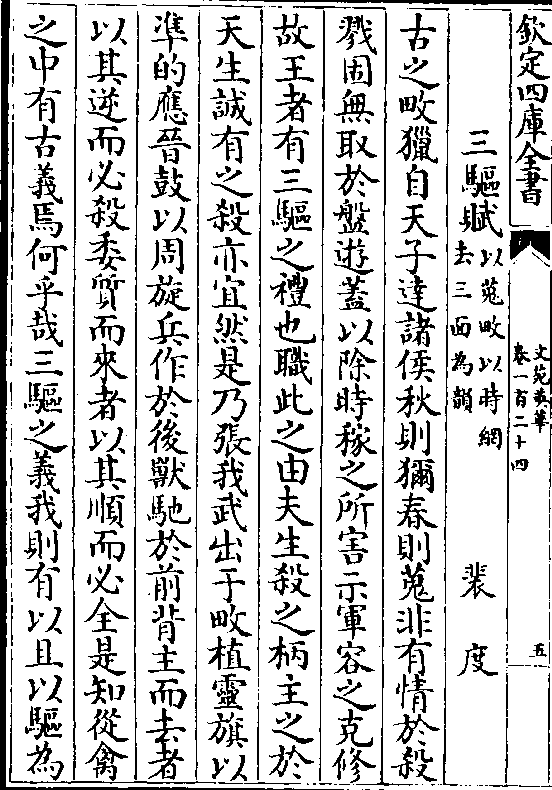 欽定四庫全書
文苑英華
卷一百二十四
五
三驅賦以蒐畋以時網
去三面為韻
裴度
古之畋獵自天子達諸侯秋則獮春則蒐非有情於殺
戮固無取於盤遊蓋以除時稼之所害示軍容之克修
故王者有三驅之禮也職此之由夫生殺之柄主之於
天生誠有之殺亦宜然是乃張我武出于畋植靈旗以
準的應晉鼓以周旋兵作於後獸馳於前背主而去者
以其逆而必殺委質而來者以其順而必全是知從禽
之中有古義焉何乎哉三驅之義我則有以且以驅為